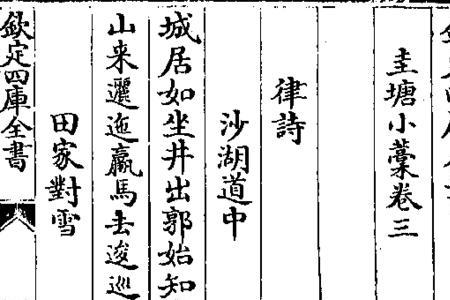 圭塘小藁卷三
律詩
沙湖道中
城居如坐井出郭始知
山来邐迤羸馬去逡巡
田家對雪
欽定四庫全書